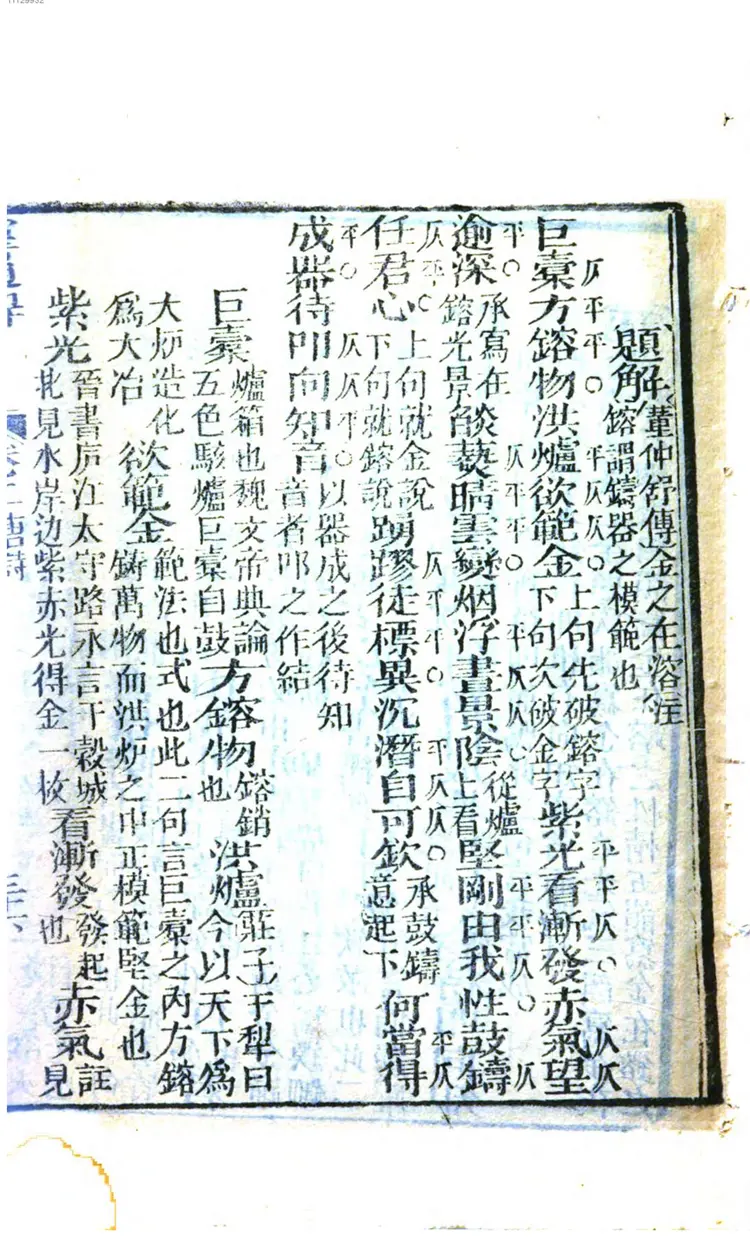 題解
董仲舒傳金之在溶注
鎔謂鑄器之模範也
仄平平○平仄仄○平平仄○仄仄
巨橐方鎔物洪爐欲範金上句先破鎔字下句次破金字紫光看漸發赤氣望
平○仄平平○平仄仄○平平仄○仄
逾深承寫在鎔光景燄爇晴雲變烟浮晝景陰從爐上看堅剛由我性鼓鑄
仄平○仄平平○平仄仄○平仄
任君心上句就金說下句就鎔說踴躍徒標異沉潛自可欽承鼓鑄意起下何當得
平○仄仄平○
成器待叩向知音以器成之後待知音者叩之作結
巨橐爐箱也魏文帝典論五色駭爐巨橐自鼓方鎔物鎔銷也洪爐莊子子犁曰今以天下為
大炉造化為大冶欲範金範法也式也此二句言巨橐之內方鎔鑄萬物而洪炉之中正模範堅金也
紫光晉書庐江太守路永言于穀城北見水岸边紫赤光得金一枚看漸發發起也赤氣註見
卷二唐詩